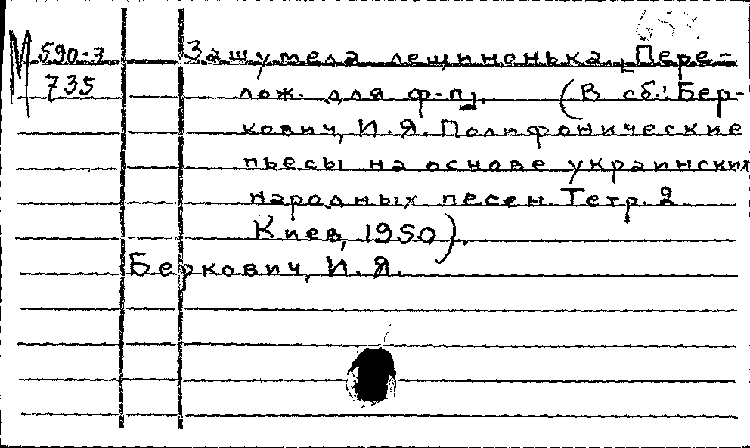 М 590-3 Зашумела лещинонька. Пере-
735 лож. для ф-п. (В сб.: Бер-
кович, И. Я. Полифонические
пьесы на основе украинских
народных песен. Тетр. 2
Киев, 1950).
Беркович, И. Я.